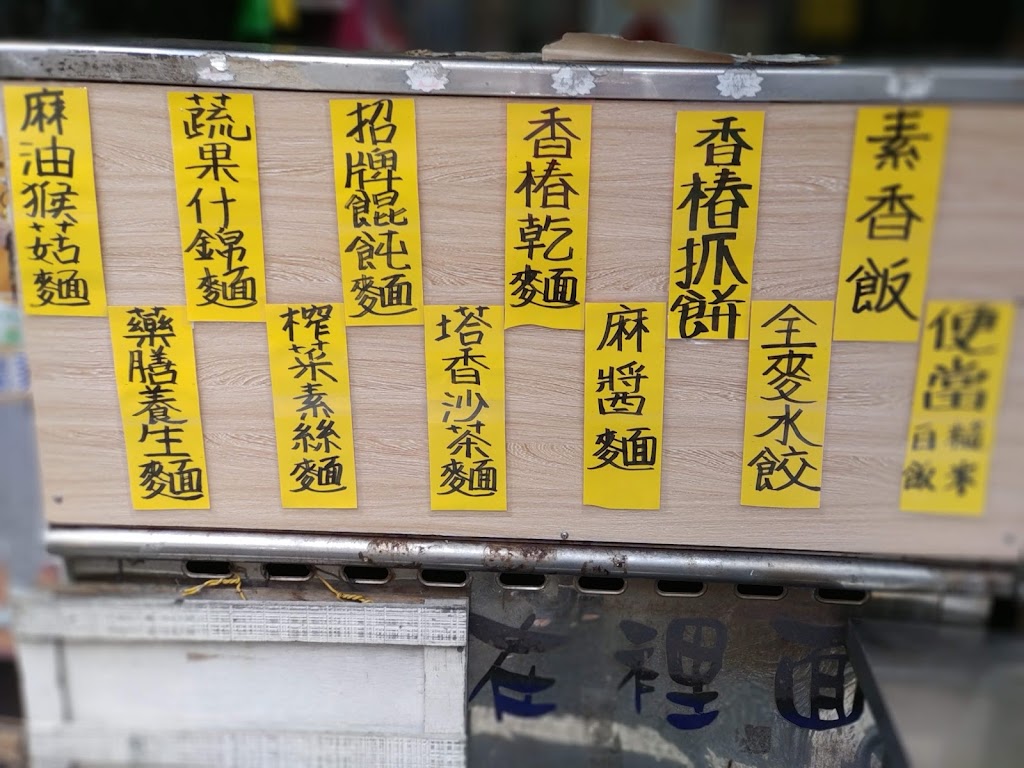 麻油猴菇麵
蔬果什錦麵
招牌餛飩麵
香椿乾麵
香椿抓餅
素香飯
藥膳養生麵
榨菜素絲麵
塔香沙茶麵
麻醬麵
全麥水餃
便當
糙米
白飯
在裡面